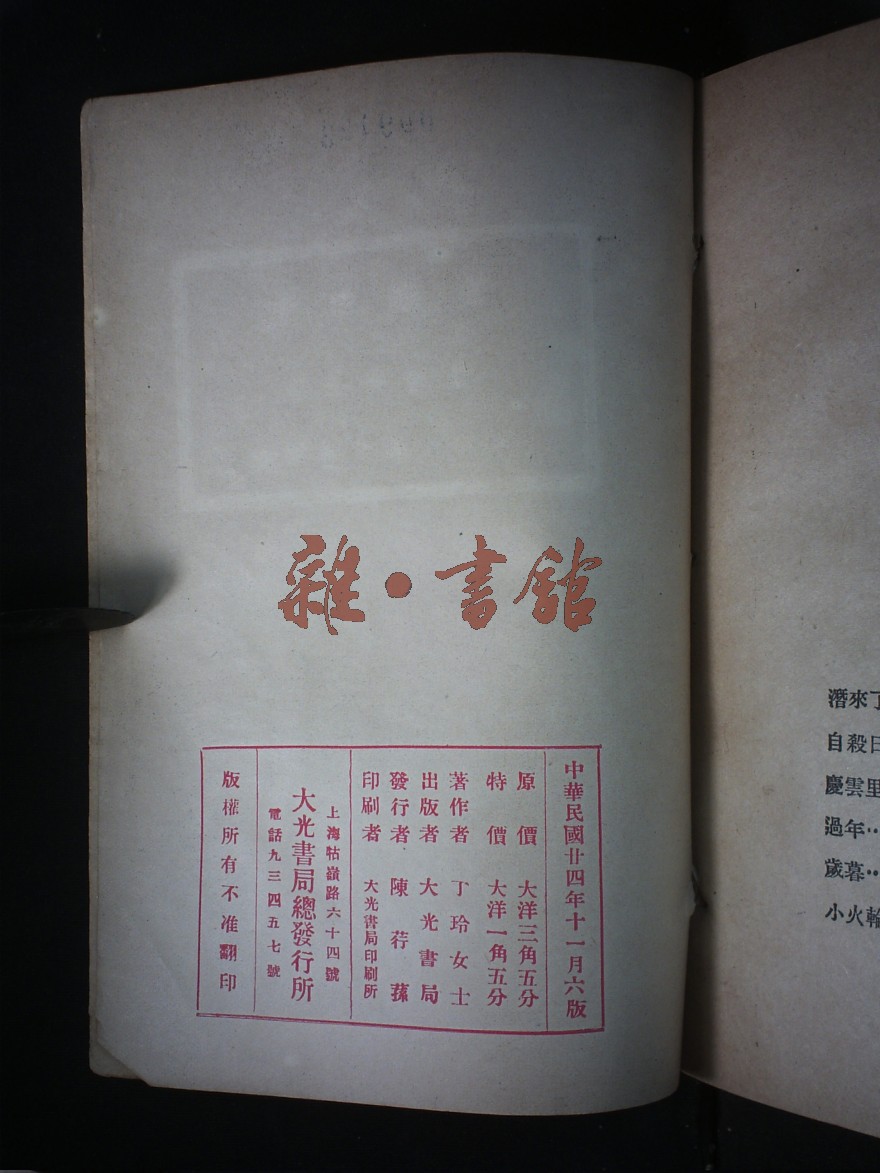 雜·書館
中華民國廿四年十一月六版
原價 大洋三角五分
特價 大洋一角五分
著作者 丁玲女士
出版者 大光書局
發行者 陳荇蓀
印刷者 大光書局印刷所
上海牯嶺路六十四號
大光書局總發行所
電話九三四五七號
版權所有不准翻印
潛來了
自殺日
慶雲里
過年··
歲暮··
小火輪